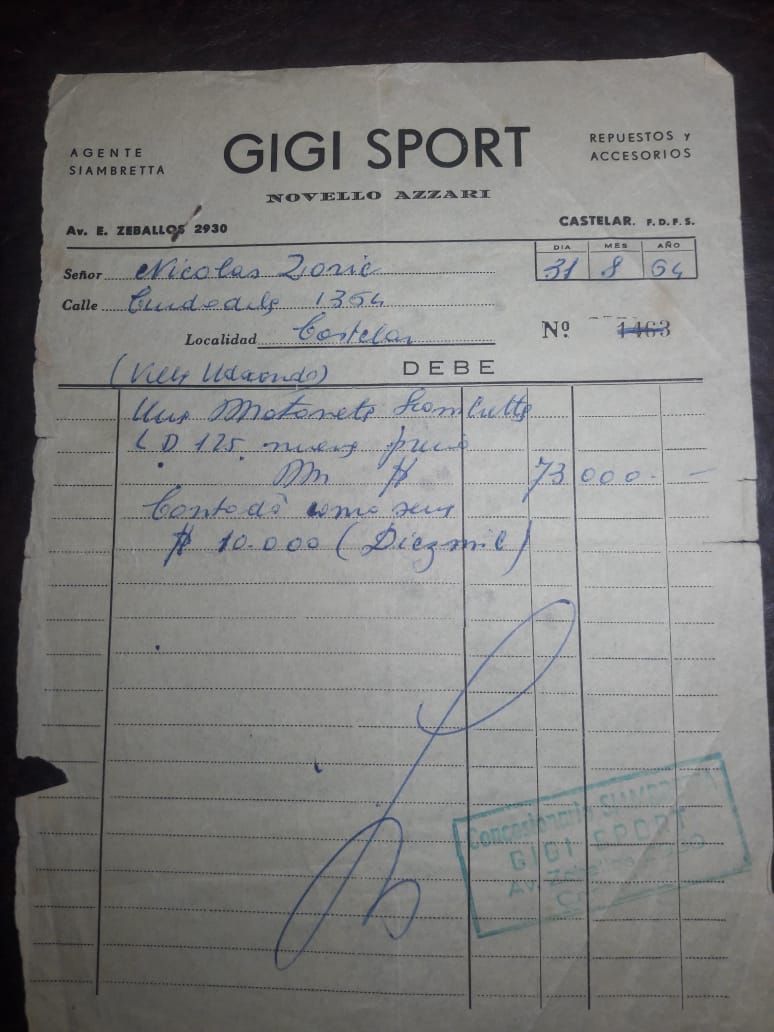 AGENTE
SIAMBRETTA
GIGI SPORT
REPUESTOS Y
ACCESORIOS
NOVELLO AZZARI
Av. E. ZEBALLOS 2930
CASTELAR. F.D.F.S.
DIA MES AÑO
31 8 64
Señor Nicolas Zoric
Calle 1364
Localidad Castelar
Nº 1463
(Villa Udaondo)
DEBE
Una Motoneta Siambretta
LD 125 nueva precio
M/n $ 73 000.-
Contado como seña
$ 10.000 (Diez mil)
Concesionario SIAMBRETTA
GIGI SPORT
Av. Zeballos